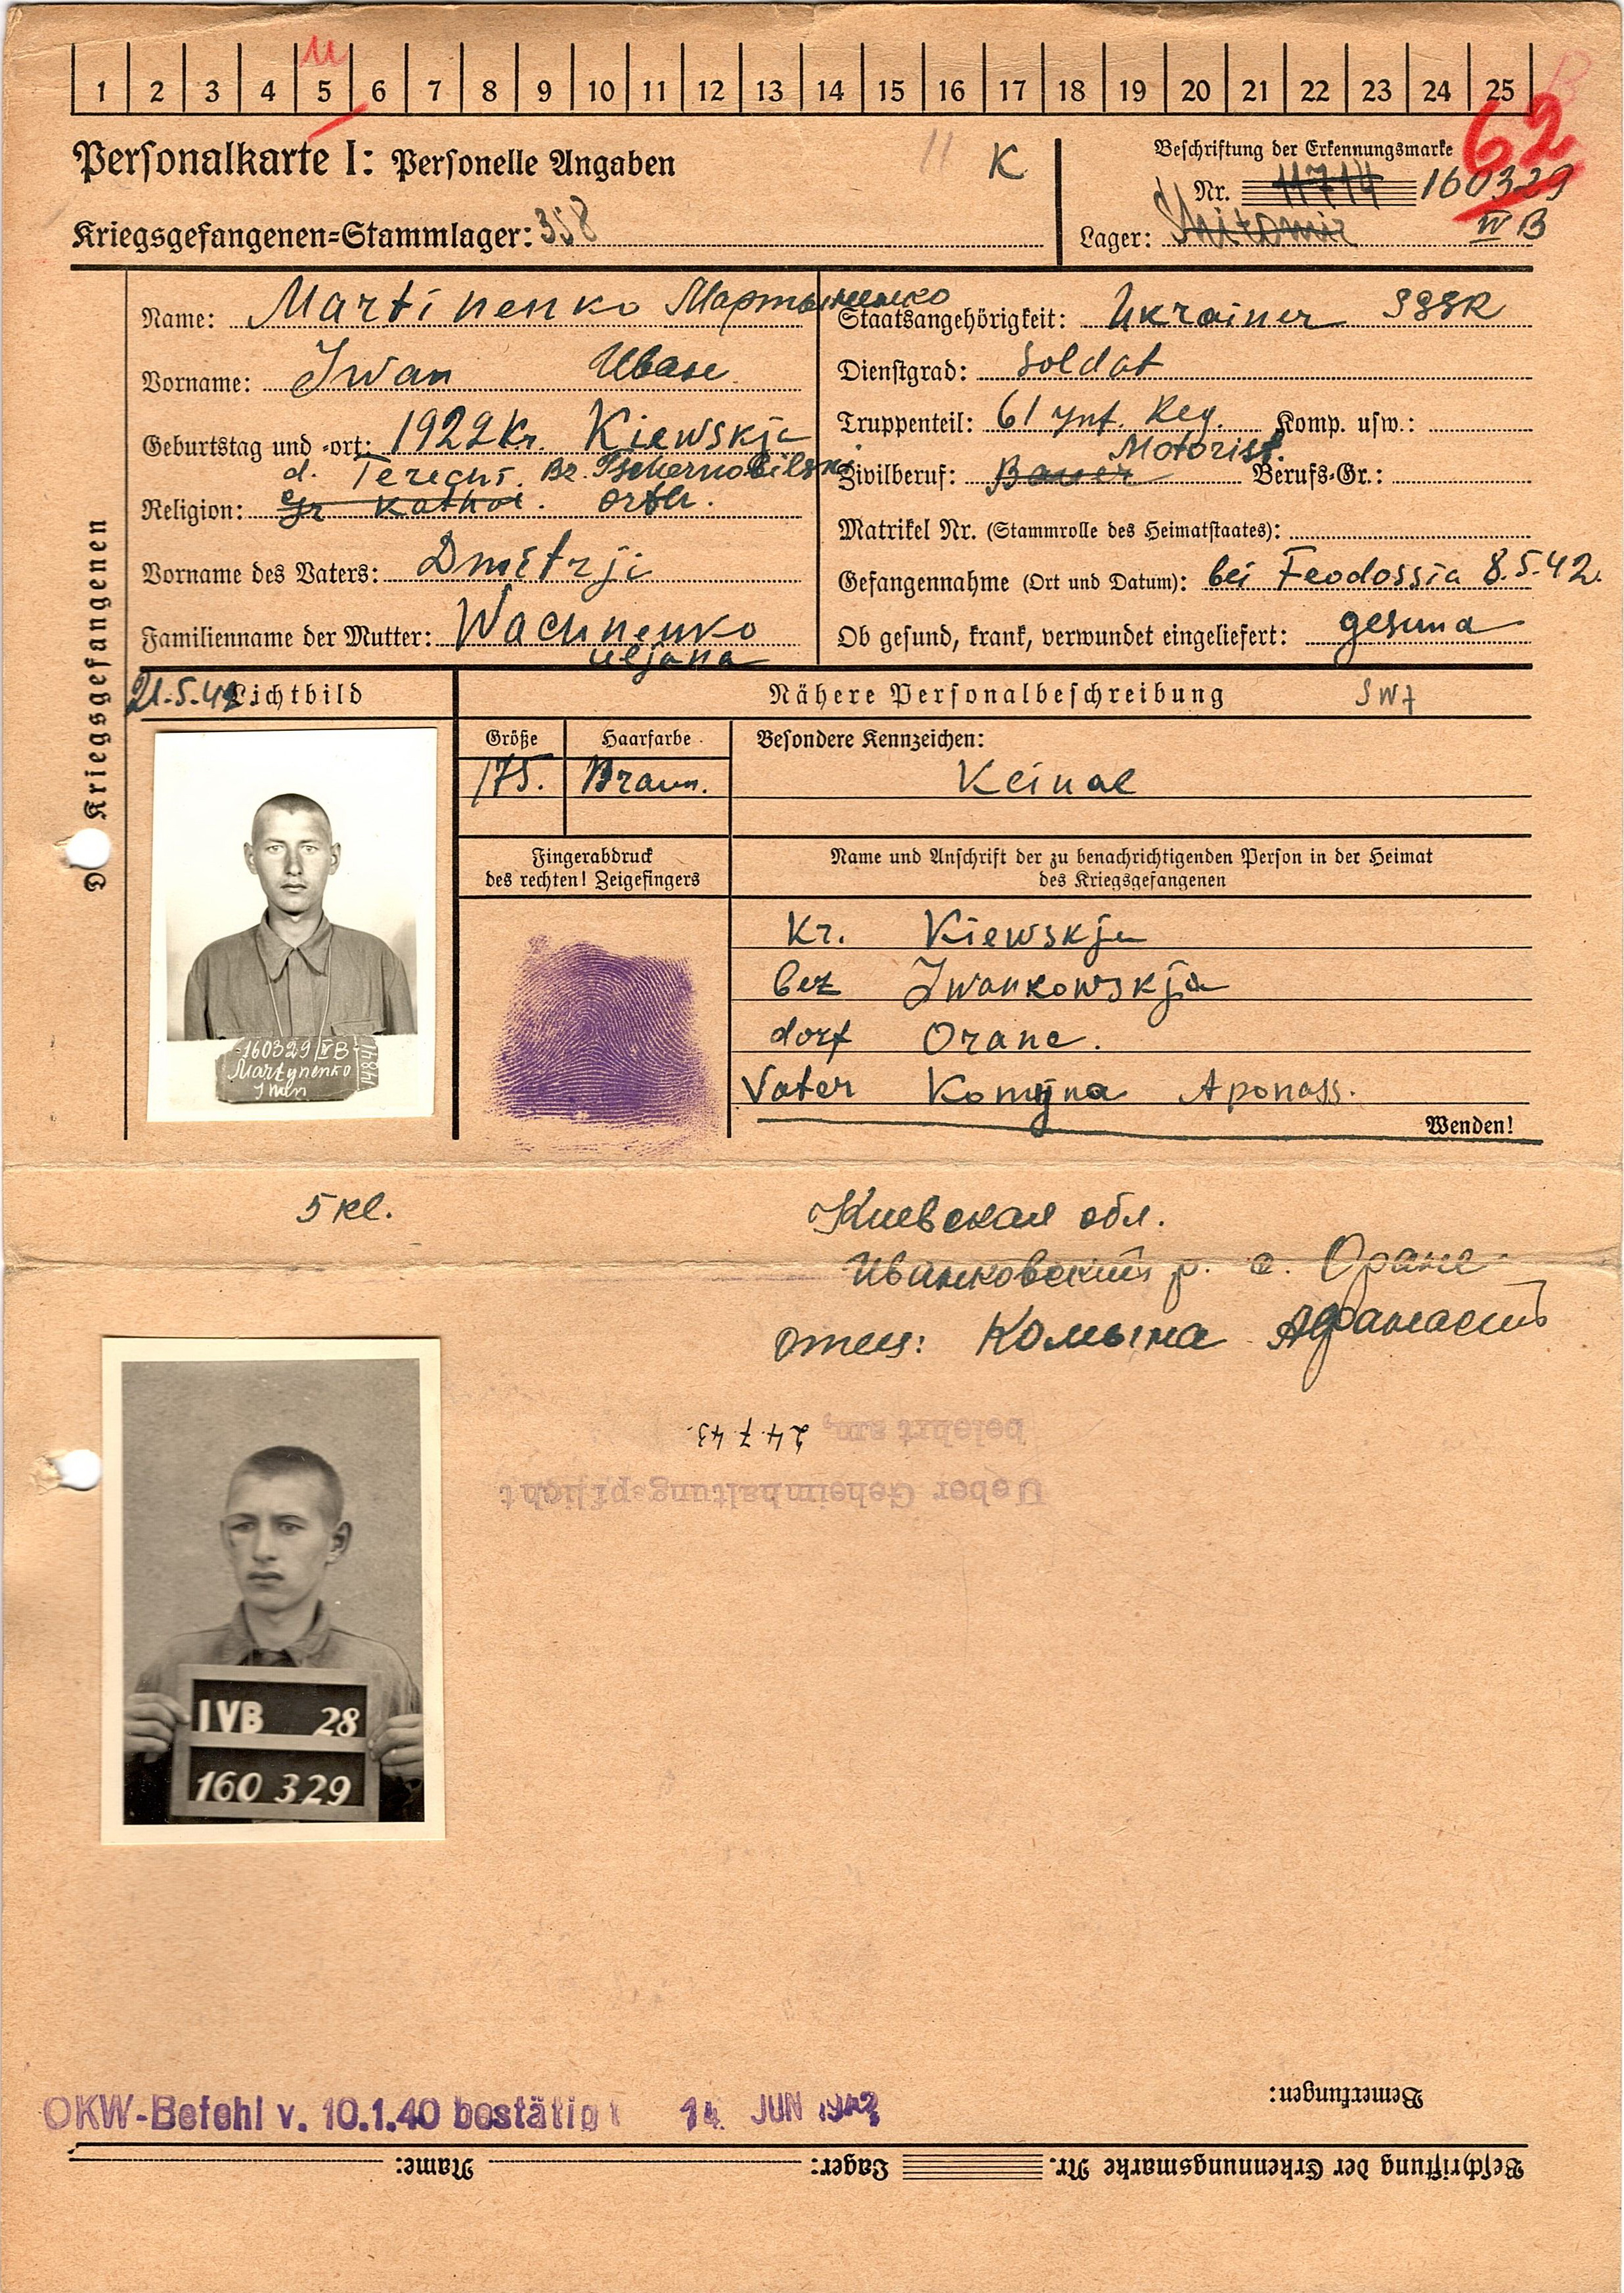 1 2 3 4 5 6 7 8 9 10 11 12 13 14 15 16 17 18 19 20 21 22 23 24 25
Personalkarte I: Personelle Angaben
K
Beschriftung der Erkennungsmarke
62
Nr. 11714 160329
Kriegsgefangenen=Stammlager: 358
Lager: Shitomir IV B
Des Kriegsgefangenen
Name: Martinenko Мартыненко
Vorname: Iwan Иван
Geburtstag und =ort: 1922 Kr. Kiewskja
d. Terechi. Bz. Tschernobilski
Religion: gr Kathol. orth.
Vorname des Vaters: Dmitrji
Familienname der Mutter: Wachnenko
uljana
Staatsangehörigkeit: Ukrainer SSSR
Dienstgrad: Soldat
Truppenteil: 61 Inf. Reg. Komp. usw.:
Motorist.
Zivilberuf: Bauer Berufs=Gr.:
Matrikel Nr. (Stammrolle des Heimatstaates):
Gefangennahme (Ort und Datum): bei Feodossia 8.5.42.
Ob gesund, krank, verwundet eingeliefert: gesund
21.5.42 Lichtbild
Nähere Personalbeschreibung
Größe Haarfarbe
175. Braun.
Besondere Kennzeichen:
Keine
Fingerabdruck
des rechten! Zeigefingers
Name und Anschrift der zu benachrichtigenden Person in der Heimat
des Kriegsgefangenen
Kr. Kiewskja
bez Iwankowskja
dorf Orane.
Vater Komyna Aponass.
Wenden!
160329 IV B
Martynenko
Iwan
5 kl.
Киевская обл.
Иванковский р. с. Оране
отец: Комына Афанасий
belehrt am, 24.7.43.
Ueber Geheimhaltungspflicht
IVB 28
160 329
Bemerkungen:
OKW-Befehl v. 10.1.40 bestätigt 14. JUN 1942
Beschriftung der Erkennungsmarke Nr. Lager: Name: